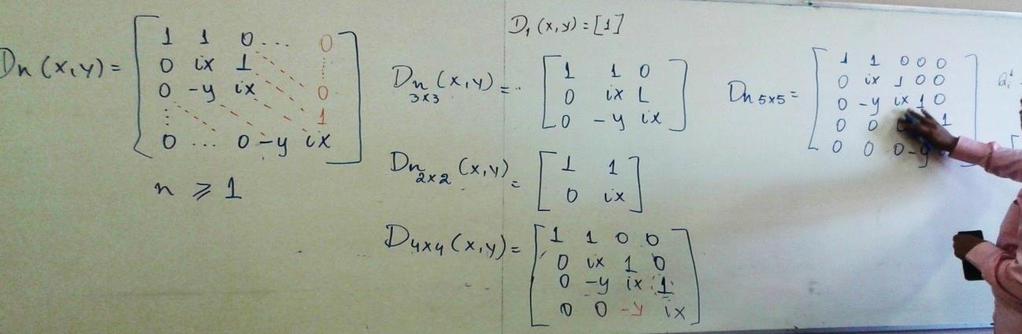 D₁(x,y) = [1]
Dn(x,y) =
1 1 0 ... 0
0 ix 1
0 -y ix 0
⋮ 1
0 ... 0 -y ix
n ⩾ 1
Dn 3x3 (x,y) =
1 1 0
0 ix 1
0 -y ix
Dn 2x2 (x,y) =
1 1
0 ix
D4x4 (x,y) =
1 1 0 0
0 ix 1 0
0 -y ix 1
0 0 -y ix
Dn 5x5 =
1 1 0 0 0
0 ix 1 0 0
0 -y ix 1 0
0 0 1
0 0 0 -y